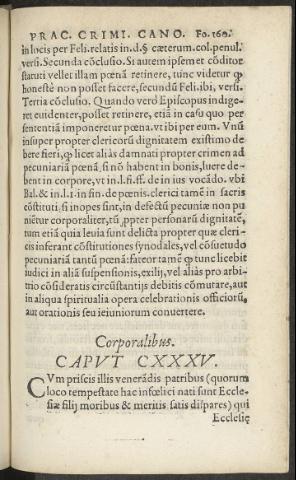 PRAC. CRIMI. CANO. Fo. 160.
in locis per Feli. relatis in. d. § cæterum. col. penul.
versi. Secunda cōclusio. Si autem ipsemet cōditor
statuti vellet illam pœnā retinere, tunc videtur ꝙ
honestè non posset facere, secundū Feli. ibi, versi.
Tertia cōclusio. Quando verò Episcopus indige-
ret euidenter, posset retinere, etiā in casu quo per
sententiā imponeretur pœna. vt ibi per eum. Vnū
insuper propter clericorū dignitatem existimo de-
bere fieri, ꝙ licet aliàs damnati propter crimen ad
pecuniariā pœnā, si nō habent in bonis, luere de-
bent in corpore, vt in. l. fi. ff. de in ius vocādo. vbi
Bal. & in. l. i. in fin. de pœnis. clerici tamē in sacris
cōstituti. si inopes sint, in defectū pecuniæ non pu
niētur corporaliter, tū ꝓpter personarū dignitatē,
tum etiā quia leuia sunt delicta propter quæ cleri-
cis inferant cōstitutiones synodales, vel cōsuetudo
pecuniariā tantū pœnā: fateor tamē ꝙ tunc licebit
iudici in aliā suspensionis, exilij, vel aliàs pro arbi-
trio cōsideratis circūstantijs debitis cōmutare, aut
in aliqua spiritualia opera celebrationis officiorū,
aut orationis seu ieiuniorum conuertere.
Corporalibus.
CAPVT CXXXV.
CVm priscis illis venerādis patribus (quorum
loco tempestate hac infœlici nati sunt Eccle-
siæ filij moribus & meritis satis dispares) qui
Ecclesię